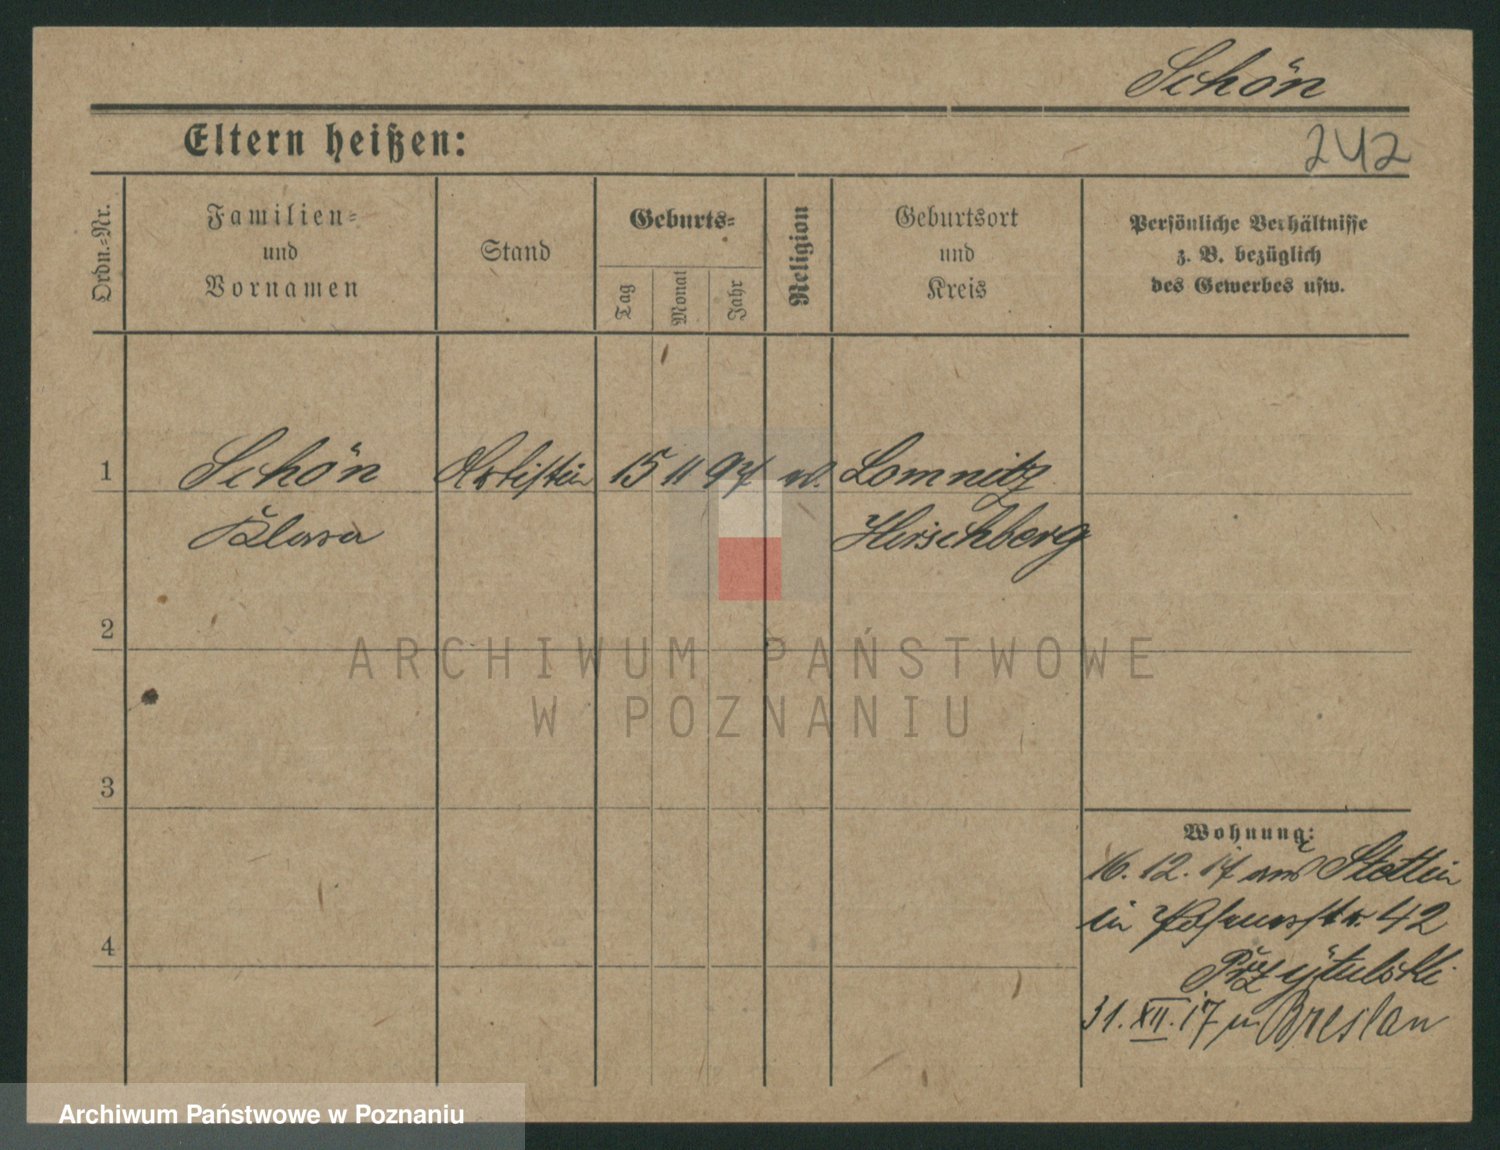 Schön
Eltern heißen:
242
Ordn.=Nr.
Familien=
und
Vornamen
Stand
Geburts=
Tag
Monat
Jahr
Religion
Geburtsort
und
Kreis
Persönliche Verhältnisse
z. B. bezüglich
des Gewerbes usw.
1
Schön Artistin 15 11 97 Lomnitz
Klara Hirschberg
2
3
4
Wohnung:
16. 12. 17 aus Stettin
in 42
31. XII. 17 n Breslau
ARCHIWUM PAŃSTWOWE
W POZNANIU
Archiwum Państwowe w Poznaniu